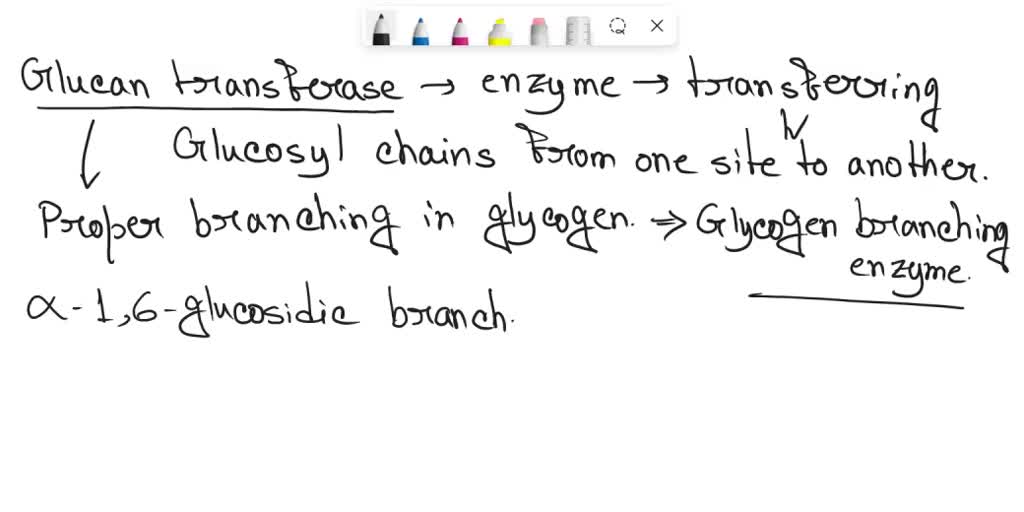 Glucan transferase → enzyme → transferring
Glucosyl chains from one site to another.
Proper branching in glycogen. ⇒ Glycogen branching
enzyme.
α-1,6-glucosidic branch.